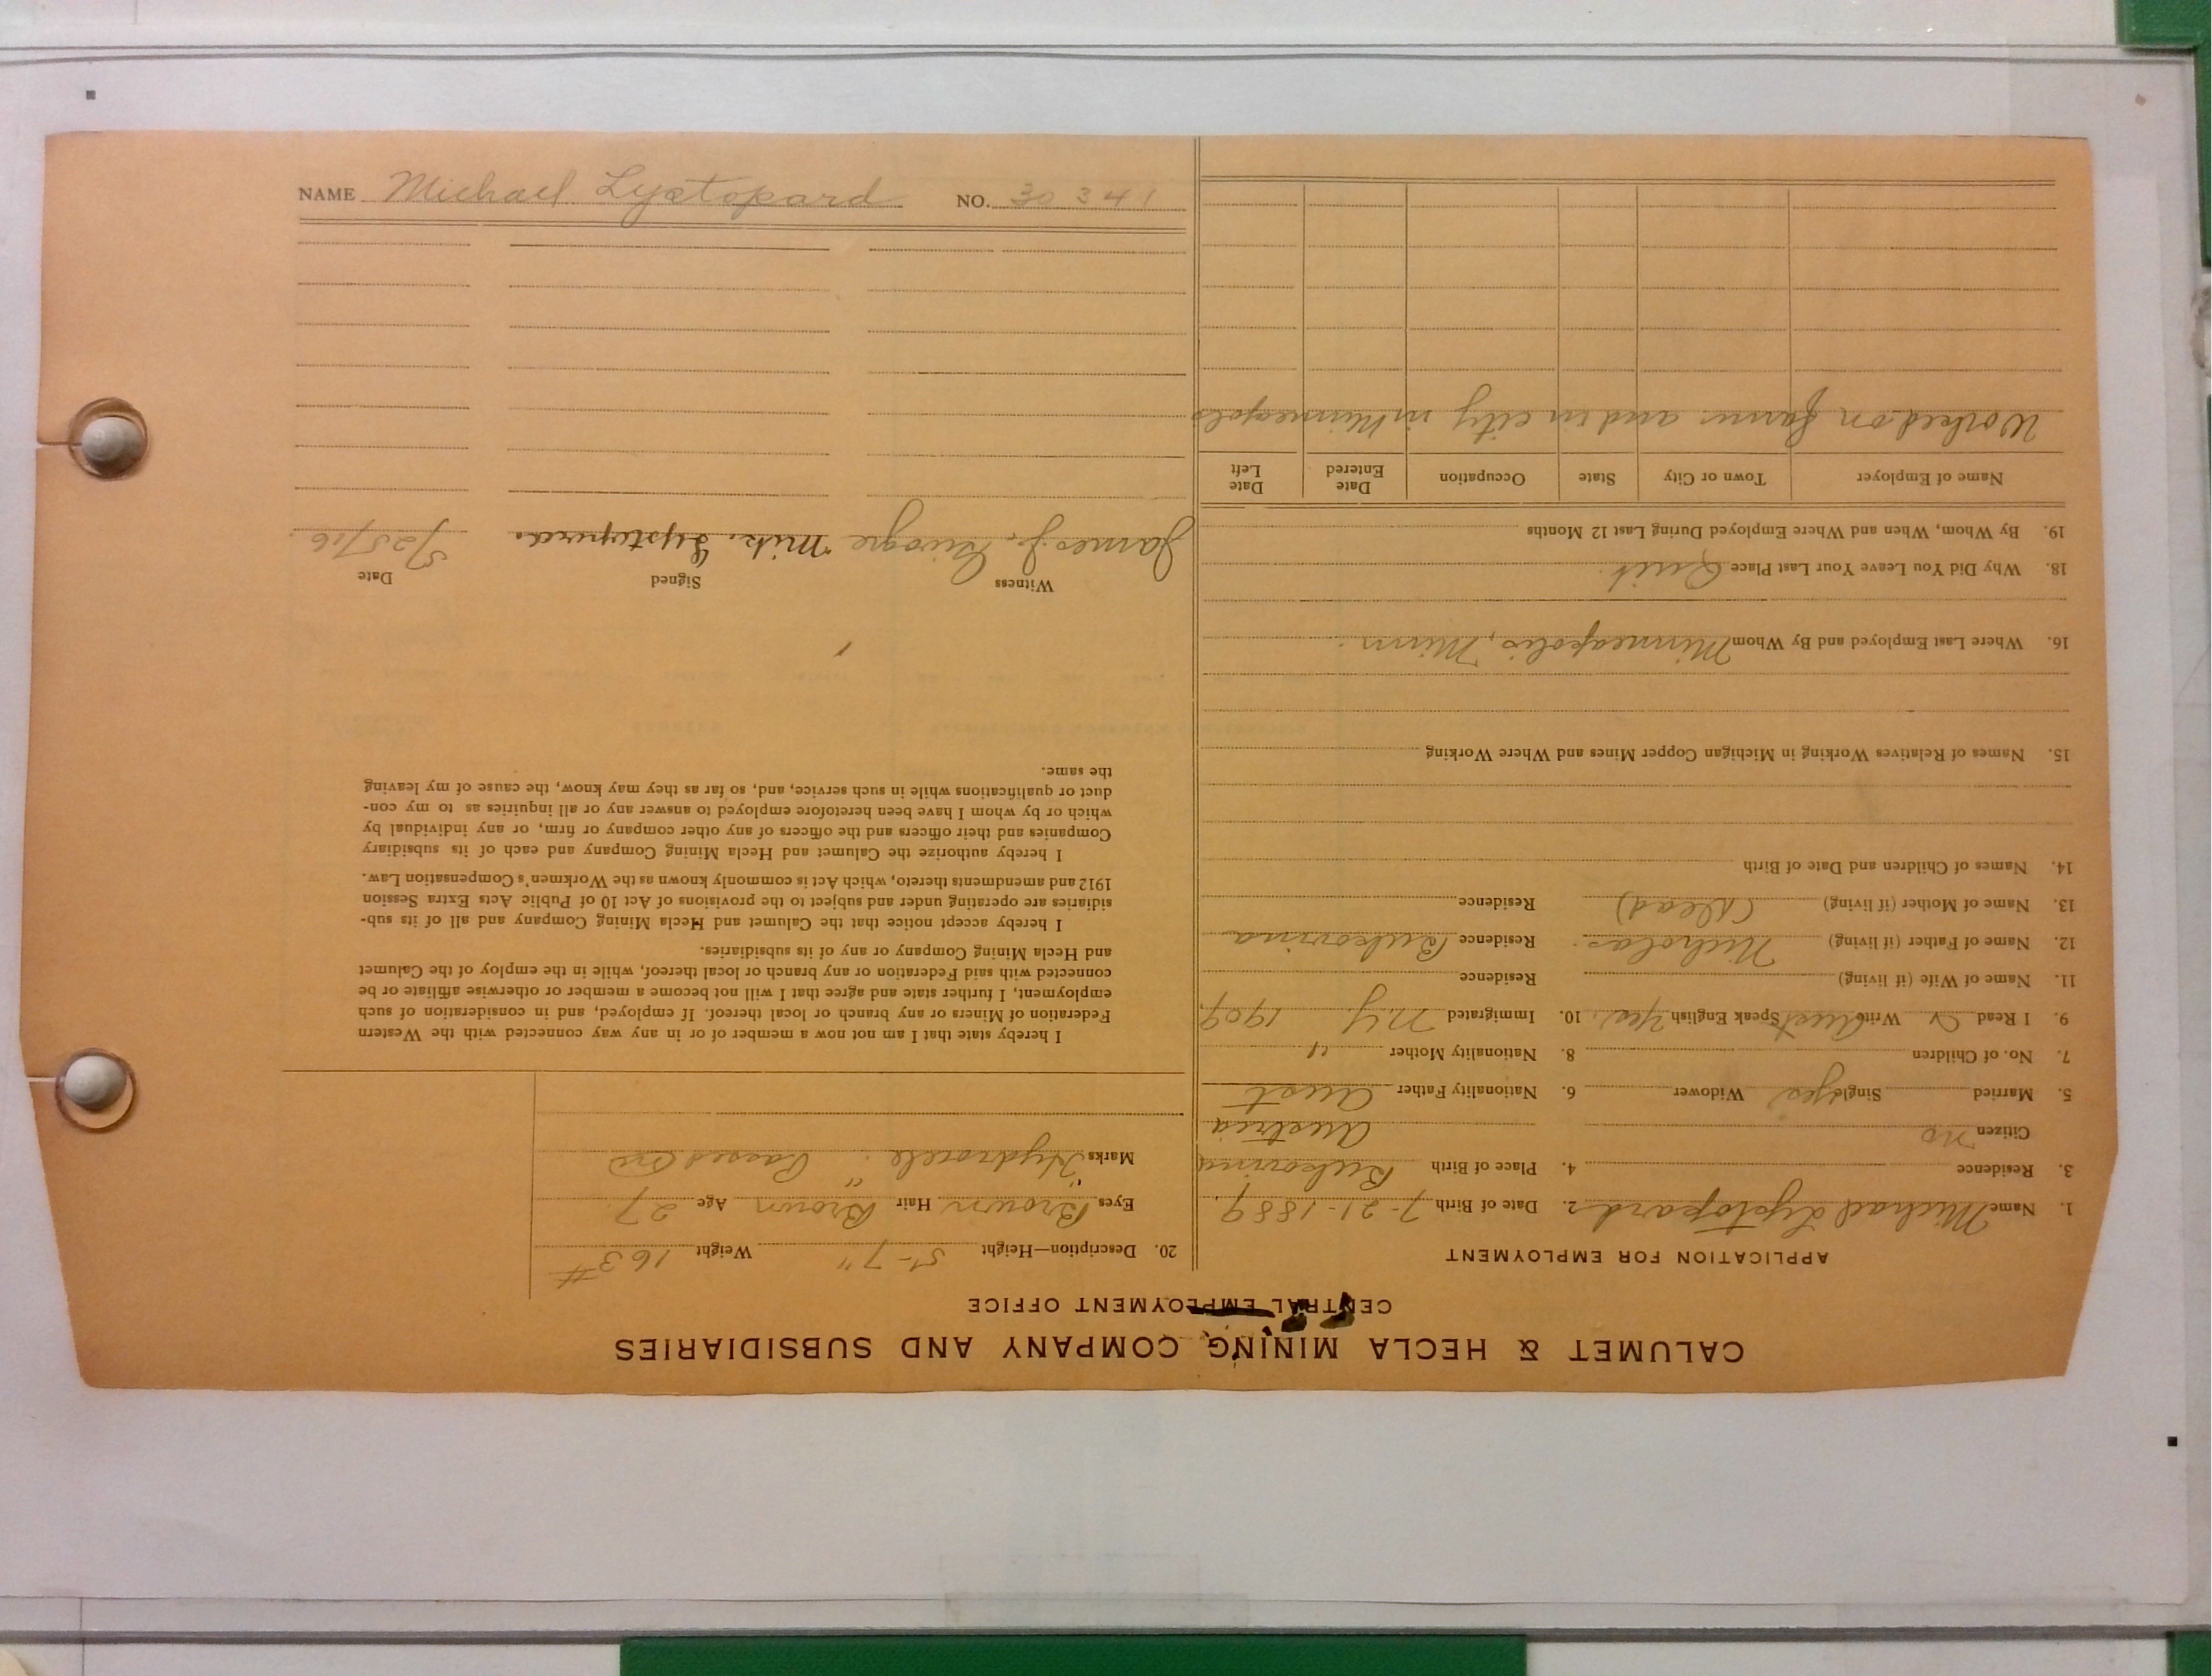 CALUMET & HECLA MINING COMPANY AND SUBSIDIARIES
CENTRAL EMPLOYMENT OFFICE
APPLICATION FOR EMPLOYMENT
1. Name Michael Lystopard 2. Date of Birth 7-21-1889.
3. Residence 4. Place of Birth Bukovina
Citizen no Austria
5. Married Single yes Widower 6. Nationality Father Aust
7. No. of Children 8. Nationality Mother "
9. I Read Write Aust Speak English Yes. 10. Immigrated NY 1909
11. Name of Wife (if living) Residence
12. Name of Father (if living) Nicholas. Residence Bukovina
13. Name of Mother (if living) (Dead) Residence
14. Names of Children and Date of Birth
15. Names of Relatives Working in Michigan Copper Mines and Where Working
16. Where Last Employed and By Whom Minneapolis, Minn.
18. Why Did You Leave Your Last Place Quit.
19. By Whom, When and Where Employed During Last 12 Months
Name of Employer Town or City State Occupation Date Entered Date Left
Worked on farms and in city in Minneapolis
20. Description—Height 5'-7" Weight 163#
Eyes Brown Hair Brown Age 27
Marks "Hydrocele." Passed
I hereby state that I am not now a member of or in any way connected with the Western
Federation of Miners or any branch or local thereof. If employed, and in consideration of such
employment, I further state and agree that I will not become a member or otherwise affiliate or be
connected with said Federation or any branch or local thereof, while in the employ of the Calumet
and Hecla Mining Company or any of its subsidiaries.
I hereby accept notice that the Calumet and Hecla Mining Company and all of its sub-
sidiaries are operating under and subject to the provisions of Act 10 of Public Acts Extra Session
1912 and amendments thereto, which Act is commonly known as the Workmen's Compensation Law.
I hereby authorize the Calumet and Hecla Mining Company and each of its subsidiary
Companies and their officers and the officers of any other company or firm, or any individual by
which or by whom I have been heretofore employed to answer any or all inquiries as to my con-
duct or qualifications while in such service, and, so far as they may know, the cause of my leaving
the same.
Witness Signed Date
James J. Mik. Lystopard. 9/25/16.
NAME Michael Lystopard NO. 30341